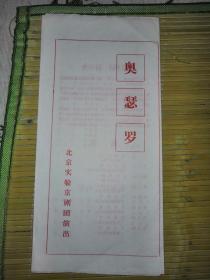 奥瑟罗
北京实验京剧团演出